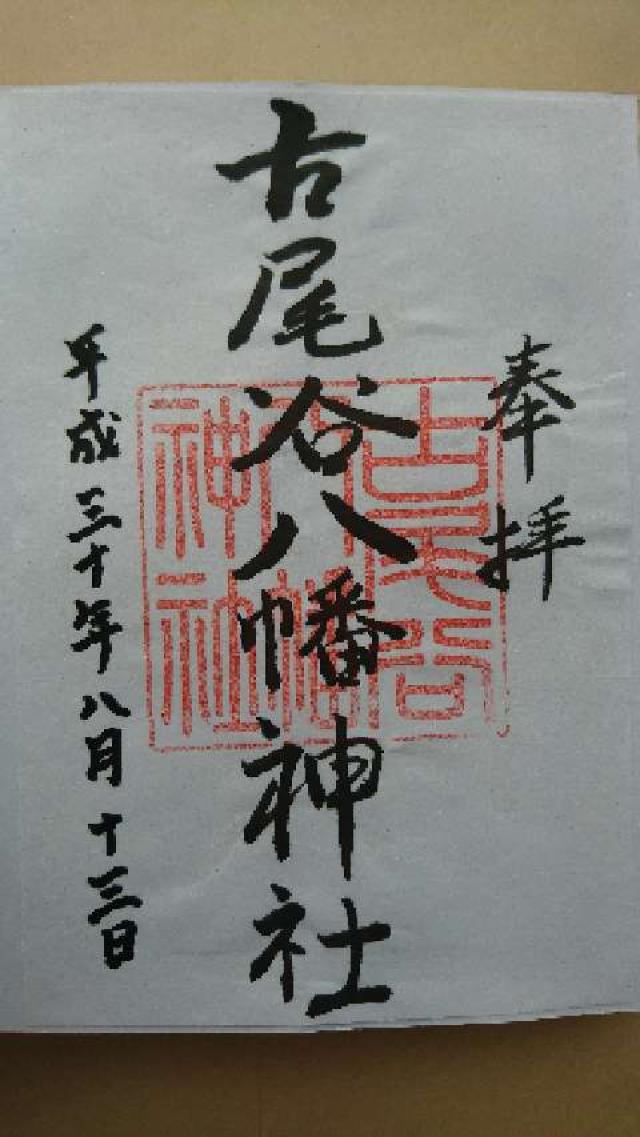 奉拝
古尾谷八幡神社
平成三十年八月十三日
古尾谷
八幡
神社